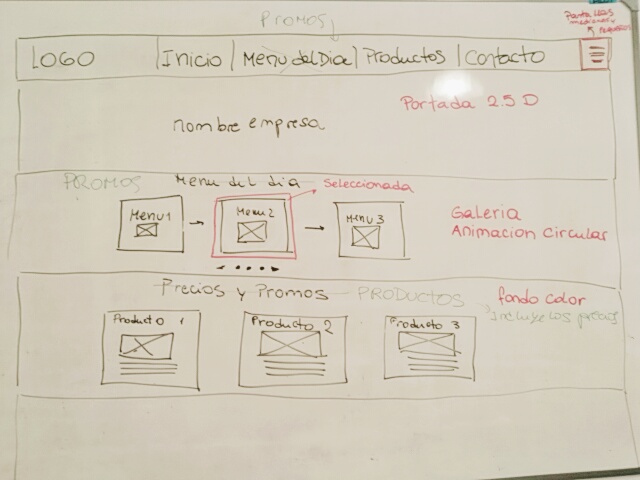 PROMOS
Pantallas
medianas y
pequeñas
LOGO
Inicio
Menu del Dia
Productos
Contacto
Portada 2.5 D
nombre empresa
PROMOS
Menu del dia
Seleccionada
Menu 1
Menu 2
Menu 3
Galeria
Animacion Circular
Precios y Promos
PRODUCTOS
fondo color
incluye los precios
Producto 1
Producto 2
Producto 3